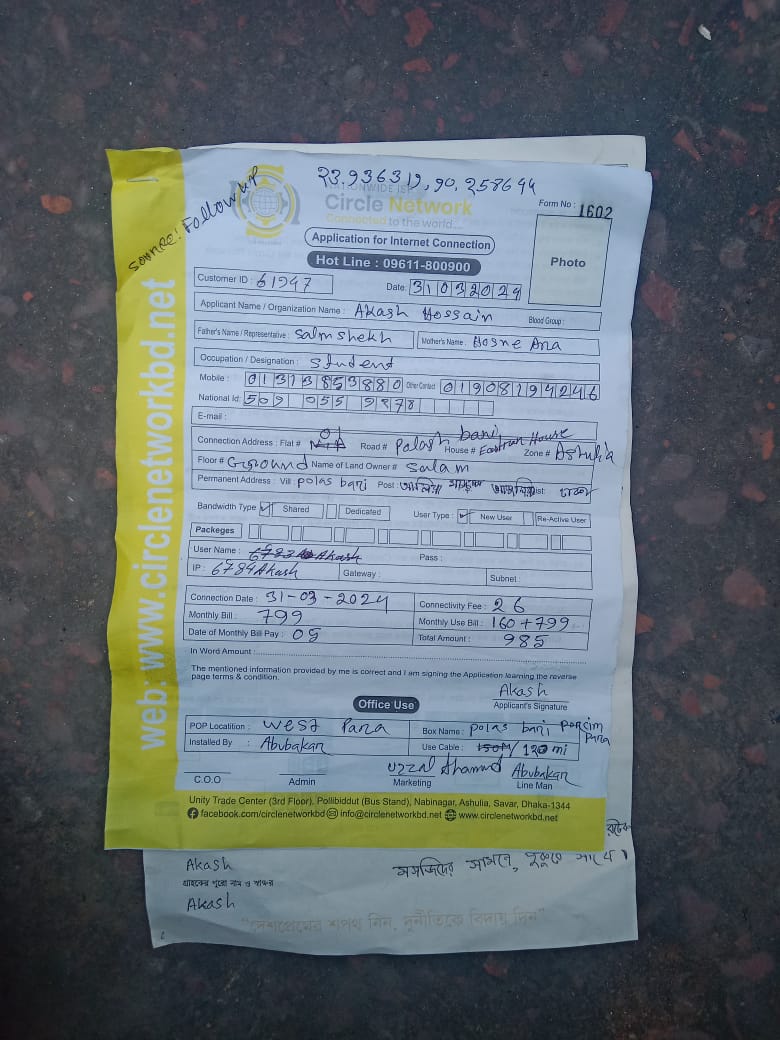 23.936319, 90.258644
Source: Follow up
NATIONWIDE ISP
Circle Network
Connected to the world...
Form No : 1602
Application for Internet Connection
Hot Line : 09611-800900
Photo
Customer ID : 61947
Date: 31032024
Applicant Name / Organization Name : Akash Hossain
Blood Group :
Father's Name / Representative : Salm shekh
Mother's Name : Hosne Ara
Occupation / Designation : Student
Mobile : 01313853880 Other Contact 01908194246
National Id: 509 055 9878
E-mail :
Connection Address : Flat # 01 Road # Palash bari House # Eastran House Zone # Ashulia
Floor # Ground Name of Land Owner # Salam
Permanent Address : Vill polas bari Post : Dist ঢাকা
Bandwidth Type Shared Dedicated User Type : New User Re-Active User
Packeges
User Name : Akash Pass :
IP : 6784Akash Gateway : Subnet :
Connection Date : 31-03-2024 Connectivity Fee : 26
Monthly Bill : 799 Monthly Use Bill : 160+799
Date of Monthly Bill Pay : 05 Total Amount : 985
In Word Amount :
The mentioned information provided by me is correct and I am signing the Application learning the reverse
page terms & condition.
Akash
Applicant's Signature
Office Use
POP Locatition : West Para Box Name : polas bari porcim para
Installed By : Abubakar Use Cable : 150M/ 120 mi
Uzzal Ahamud Abubakar
C.O.O Admin Marketing Line Man
Unity Trade Center (3rd Floor), Pollibiddut (Bus Stand), Nabinagar, Ashulia, Savar, Dhaka-1344
facebook.com/circlenetworkbd info@circlenetworkbd.net www.circlenetworkbd.net
web: www.circlenetworkbd.net
Akash
মসজিদের সামনে, পুকুরে
গ্রাহকের পুরো নাম ও স্বাক্ষর
Akash
“দেশপ্রেমের শপথ নিন, দুর্নীতিকে বিদায় দিন”